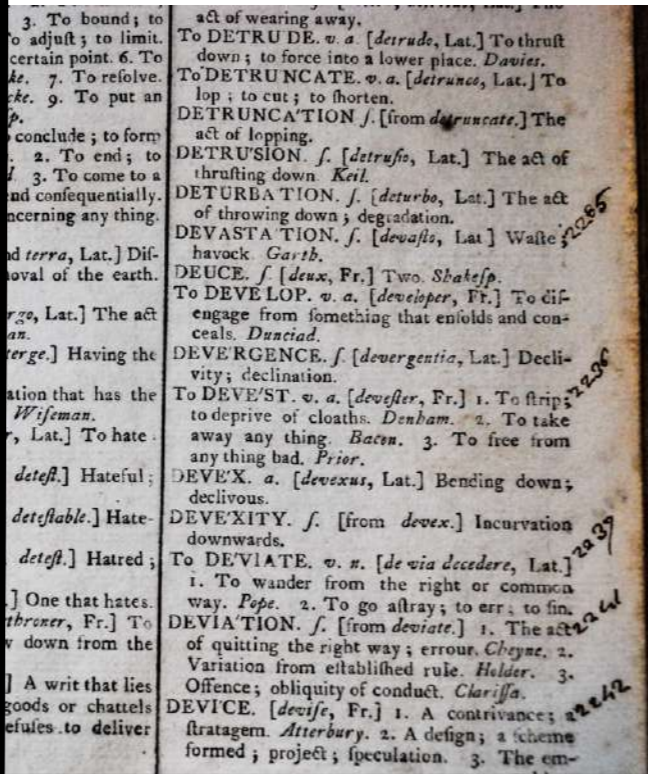 3. To bound; to
o adjuſt; to limit.
certain point. 6. To
ke. 7. To reſolve.
cke. 9. To put an
p.
conclude; to form
. 2. To end; to
3. To come to a
nd conſequentially.
ncerning any thing.
nd terra, Lat.] Diſ-
oval of the earth.
rgo, Lat.] The act
an.
terge.] Having the
ation that has the
Wiſeman.
r, Lat.] To hate.
deteſt.] Hateful;
deteſtable.] Hate-
deteſt.] Hatred;
.] One that hates.
throner, Fr.] To
w down from the
] A writ that lies
goods or chattels
efuſes to deliver
act of wearing away.
To DETRU'DE. v. a. [detrudo, Lat.] To thruſt
down; to force into a lower place. Davies.
To DETRU'NCATE. v. a. [detrunco, Lat.] To
lop; to cut; to ſhorten.
DETRUNCA'TION ſ. [from detruncate.] The
act of lopping.
DETRU'SION. ſ. [detruſio, Lat.] The act of
thruſting down. Keil.
DETURBA'TION. ſ. [deturbo, Lat.] The act
of throwing down; degradation.
DEVASTA'TION. ſ. [devaſto, Lat] Waſte;
havock. Garth.
DEUCE. ſ. [deux, Fr.] Two. Shakeſp.
To DEVE'LOP. v. a. [developer, Fr.] To diſ-
engage from ſomething that enfolds and con-
ceals. Dunciad.
DEVE'RGENCE. ſ. [devergentia, Lat.] Decli-
vity; declination.
2236
To DEVE'ST. v. a. [deveſter, Fr.] 1. To ſtrip;
to deprive of cloaths. Denham. 2. To take
away any thing. Bacon. 3. To free from
any thing bad. Prior.
DEVE'X. a. [devexus, Lat.] Bending down;
declivous.
DEVE'XITY. ſ. [from devex.] Incurvation
downwards.
2239
To DE'VIATE. v. n. [de via decedere, Lat.]
1. To wander from the right or common
way. Pope. 2. To go aſtray; to err; to ſin.
2241
DEVIA'TION. ſ. [from deviate.] 1. The act
of quitting the right way; errour. Cheyne. 2.
Variation from eſtabliſhed rule. Holder. 3.
Offence; obliquity of conduct. Clariſſa.
2242
DEVI'CE. [deviſe, Fr.] 1. A contrivance; a
ſtratagem. Atterbury. 2. A deſign; a ſcheme
formed; project; ſpeculation. 3. The em-